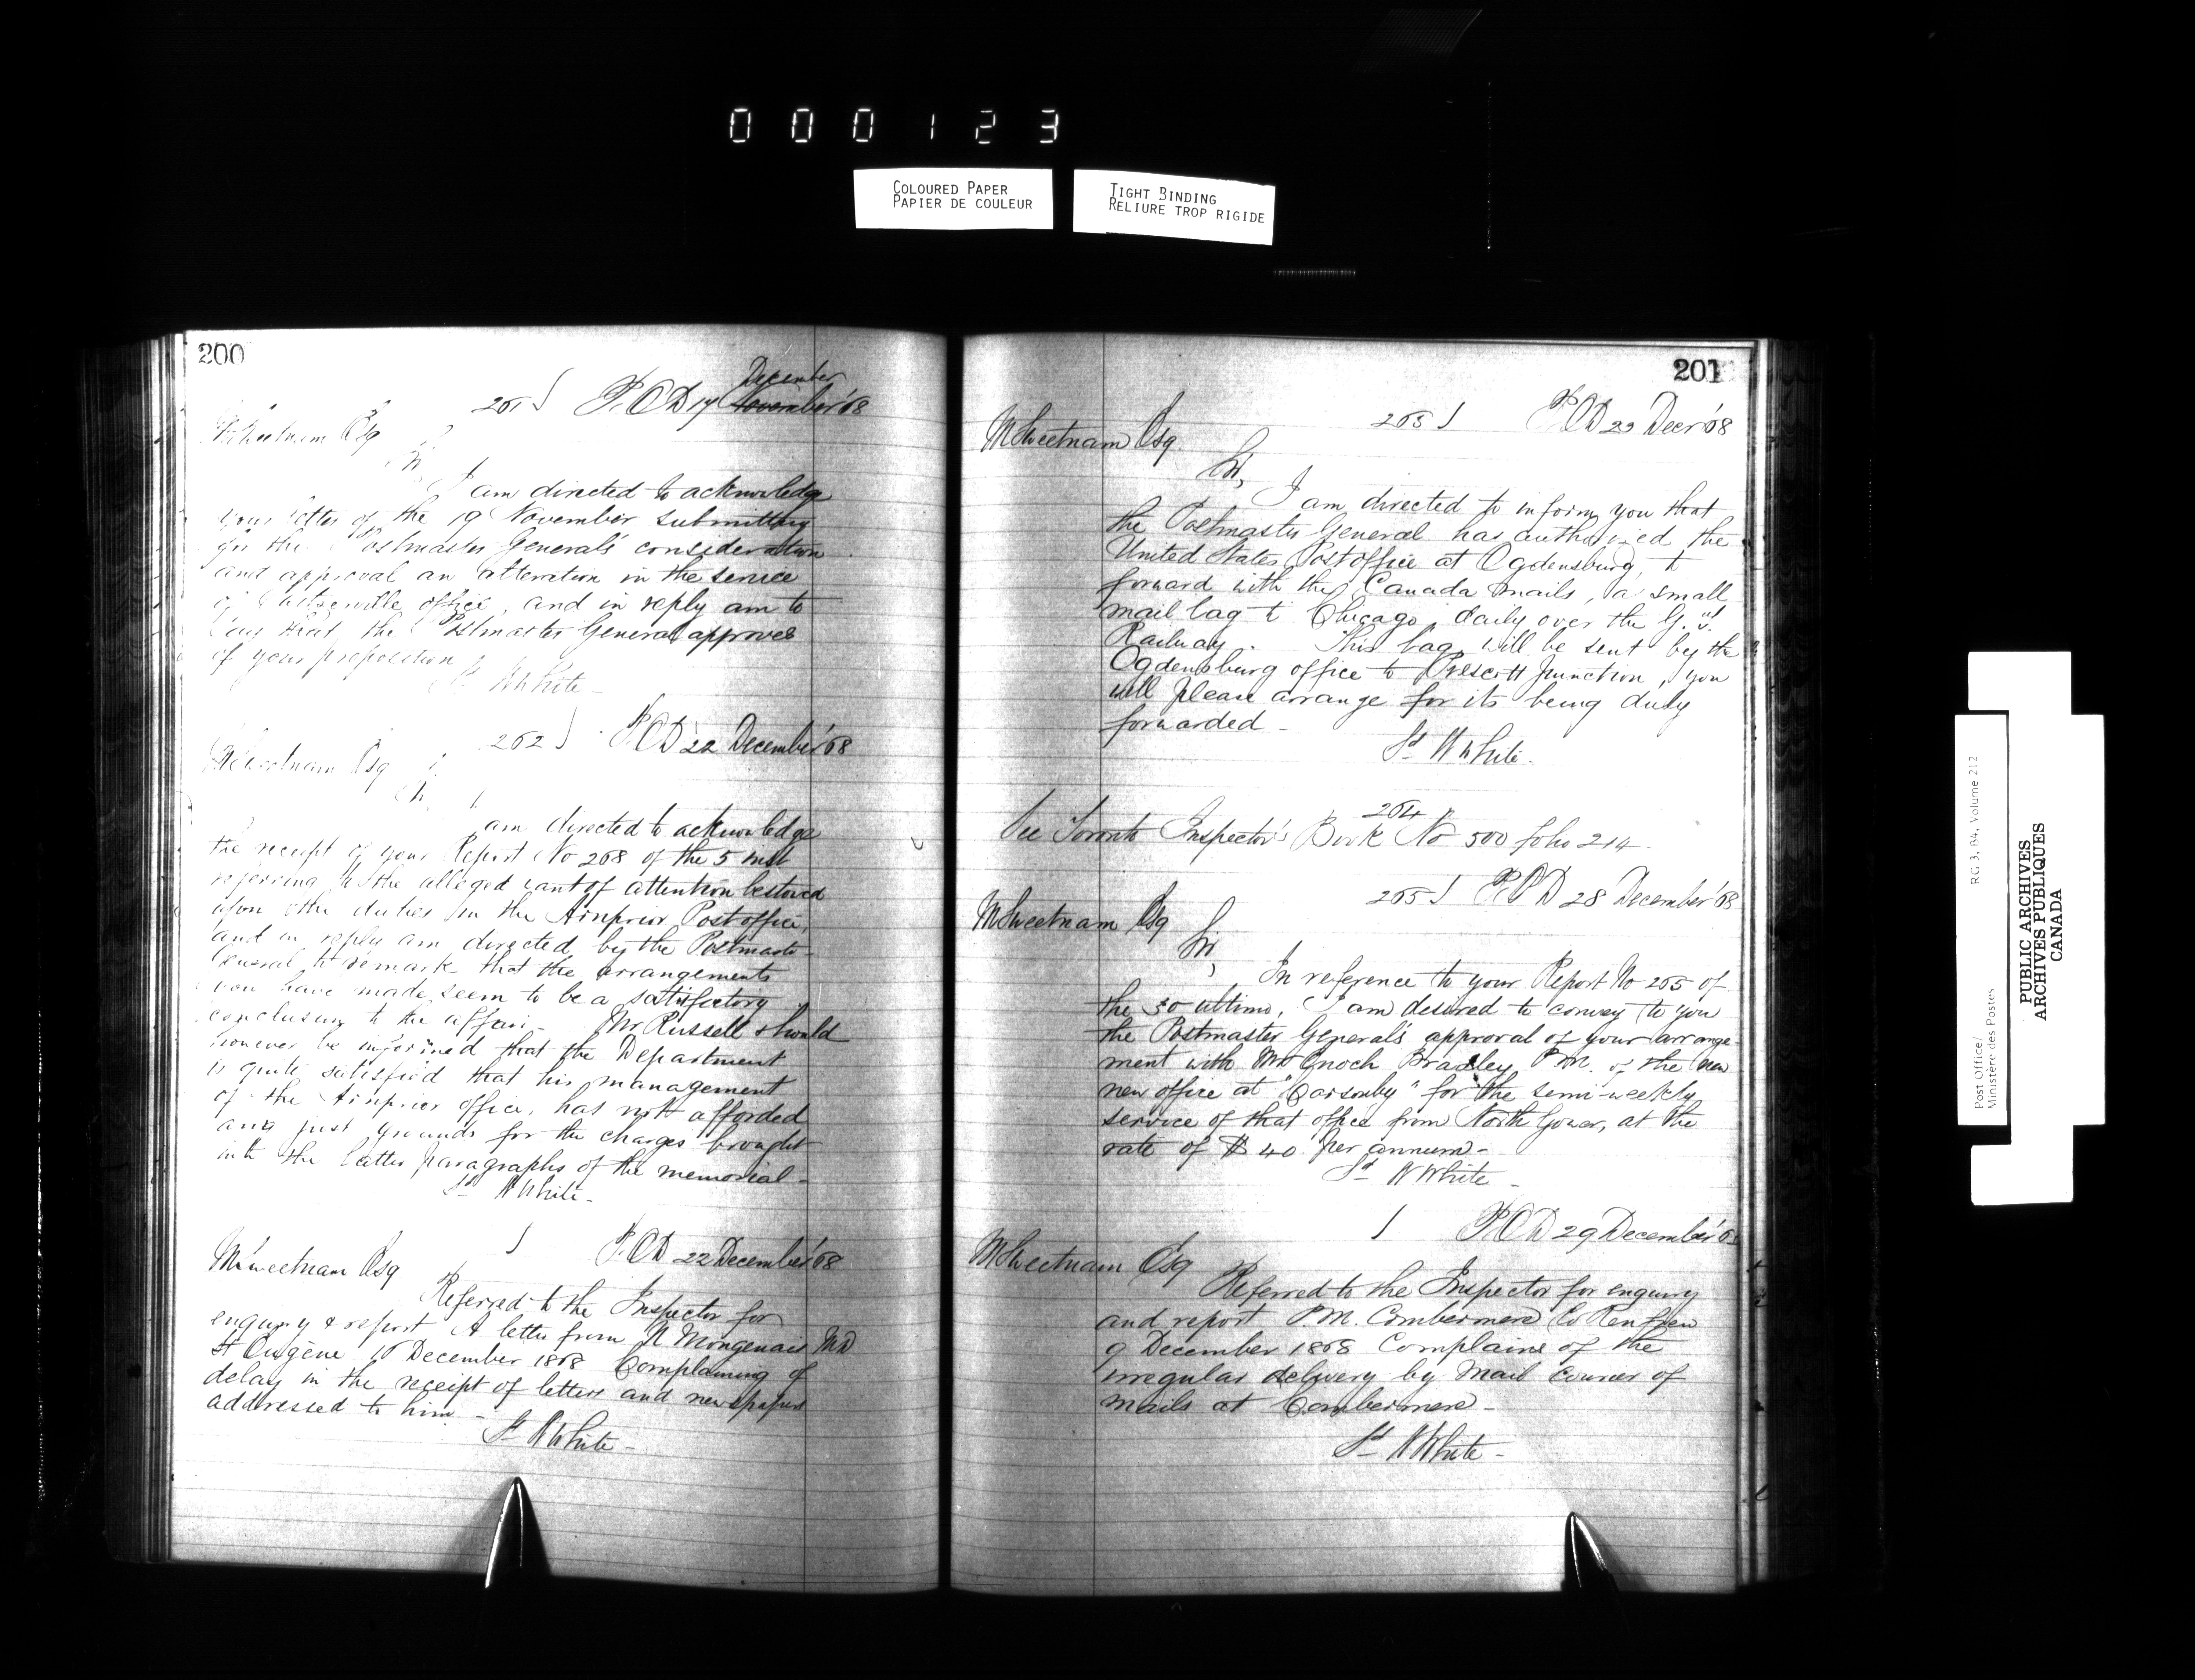 000123
COLOURED PAPER
PAPIER DE COULEUR
TIGHT BINDING
RELIURE TROP RIGIDE
200
December
261 P.O.D 17 November '68
MSweetnam Esq
Sir
I am directed to acknowledge
your letter of the 19 November submitting
for the Postmaster General's consideration
and approval an alteration in the service
of office, and in reply am to
say that the Postmaster General approves
of your proposition
Sd W White -
262 P.O.D 22 December '68
MSweetnam Esq
Sir,
I am directed to acknowledge
the receipt of your Report No 268 of the 5 inst
referring to the alleged want of attention bestowed
upon the duties in the Arnprior Post office,
and in reply am directed by the Postmaster
General to remark that the arrangements
you have made seem to be a satisfactory
conclusion to the affair - Mr Russell should
however be informed that the Department
is quite satisfied that his management
of the Arnprior office, has not afforded
any just grounds for the charges brought
into the latter paragraphs of the memorial -
Sd W White -
P.O.D 22 December '68
MSweetnam Esq
Referred to the Inspector for
enquiry & report A letter from Mongenais MD
St Eugène 10 December 1868 Complaining of
delay in the receipt of letters and newspapers
addressed to him -
Sd W White -
201
263 P.O.D 23 Decr '68
MSweetnam Esq.
Sir,
I am directed to inform you that
the Postmaster General has authorized the
United States Post office at Ogdensburg, to
forward with the Canada mails, a small
mail bag to Chicago, daily over the G.
Railway. This bag will be sent by the
Ogdensburg office to Prescott Junction, you
will please arrange for its being duly
forwarded -
Sd W White.
264
See Toronto Inspector's Book No 500 folio 214
265 P.O.D 28 December '68
MSweetnam Esq
Sir,
In reference to your Report No 265 of
the 30 ultimo, I am desired to convey to you
the Postmaster General's approval of your arrange-
ment with Mr Enoch Bradley P.M. of the new
new office at "Carsonby" for the semi-weekly
service of that office from North Gower, at the
rate of $40 per annum -
Sd W White -
P.O.D 29 December '68
MSweetnam Esq
Referred to the Inspector for enquiry
and report P.M. Combermere Co Renfrew
9 December 1868 Complains of the
irregular delivery by Mail Courier of
mails at Combermere -
Sd W White -
Post Office/
Ministère des Postes
RG 3, B4, Volume 212
PUBLIC ARCHIVES
ARCHIVES PUBLIQUES
CANADA